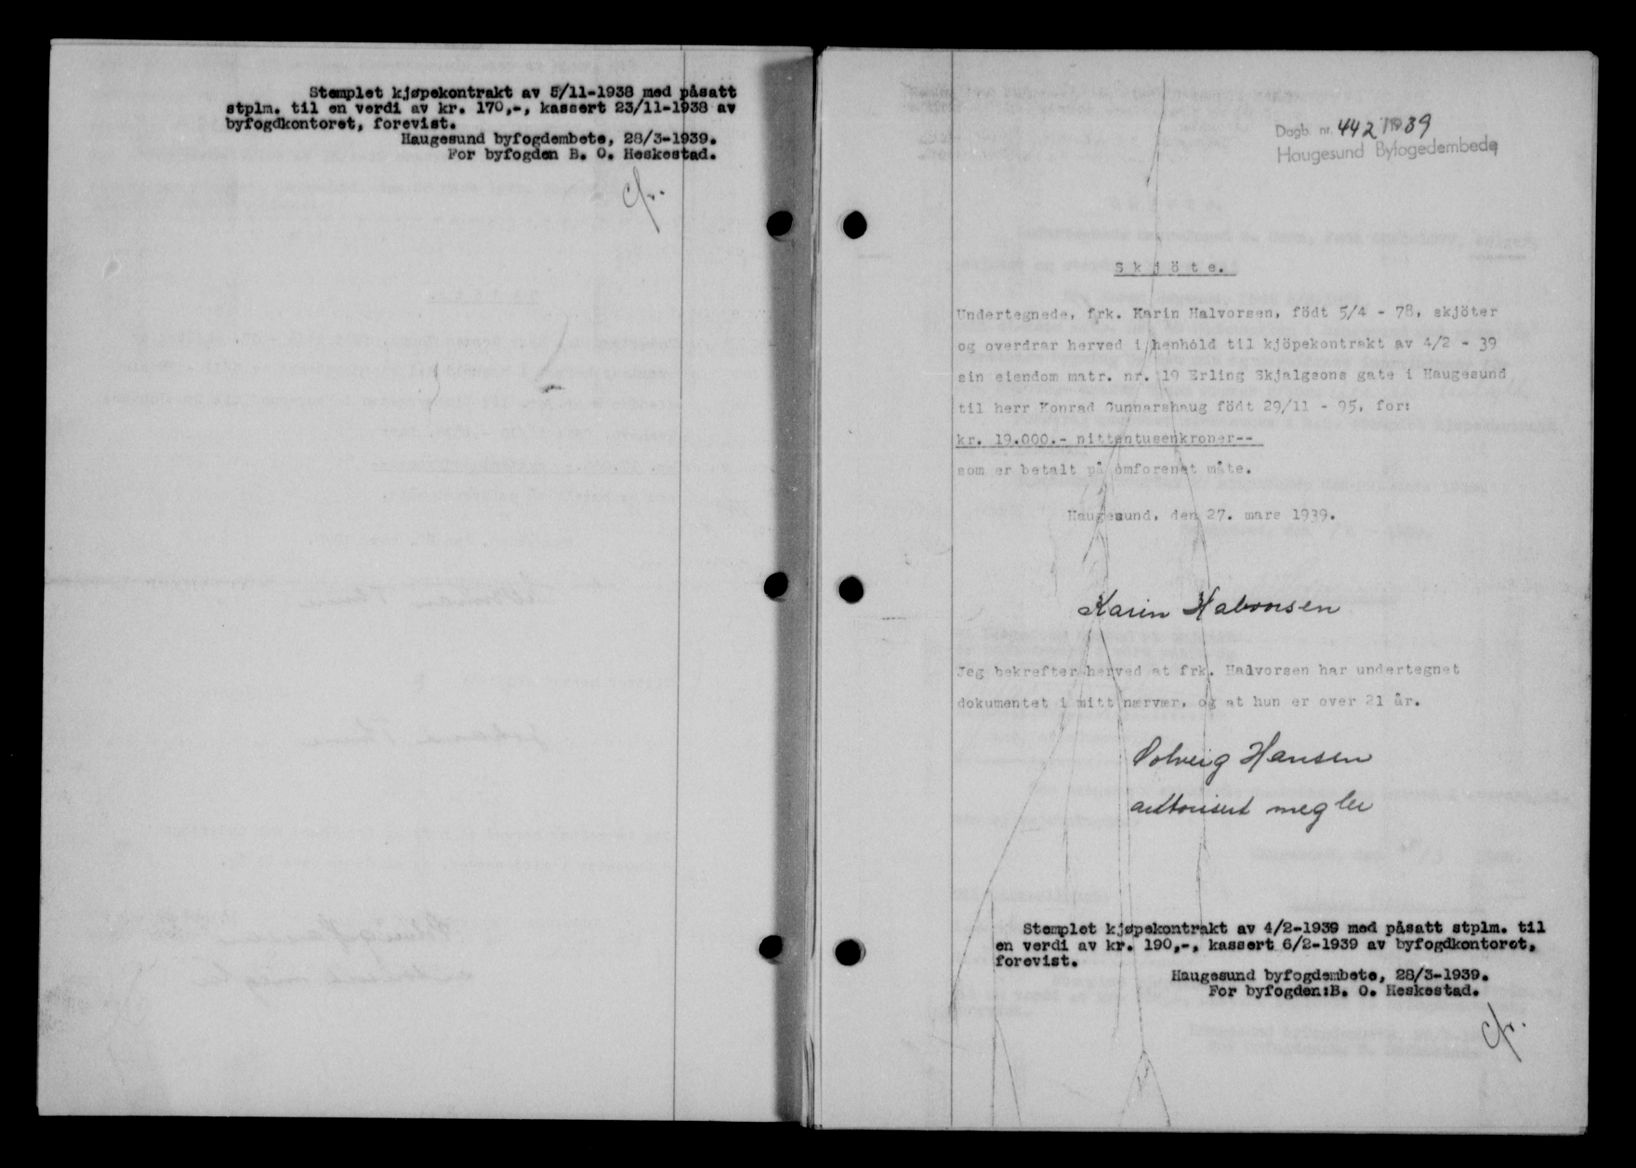 Stemplet kjøpekontrakt av 5/11-1938 med påsatt
stplm. til en verdi av kr. 170,-, kassert 23/11-1938 av
byfogdkontoret, forevist.
Haugesund byfogdembete, 28/3-1939.
For byfogden B. O. Heskestad.
Dagb. nr. 442 1939
Haugesund Byfogedembede
Skjöte.
Undertegnede, frk. Karin Halvorsen, födt 5/4 - 78, skjöter
og overdrar herved i henhold til kjöpekontrakt av 4/2 - 39
sin eiendom matr. nr. 19 Erling Skjalgsons gate i Haugesund
til herr Konrad Gunnarshaug födt 29/11 - 95, for:
kr. 19.000.- nittentusenkroner--
som er betalt på omforenet måte.
Haugesund, den 27. mars 1939.
Karin Halvorsen
Jeg bekrefter herved at frk. Halvorsen har undertegnet
dokumentet i mitt nærvær, og at hun er over 21 år.
Solveig Hansen
autorisert megler
Stemplet kjøpekontrakt av 4/2-1939 med påsatt stplm. til
en verdi av kr. 190,-, kassert 6/2-1939 av byfogdkontoret,
forevist.
Haugesund byfogdembete, 28/3-1939.
For byfogden:B. O. Heskestad.